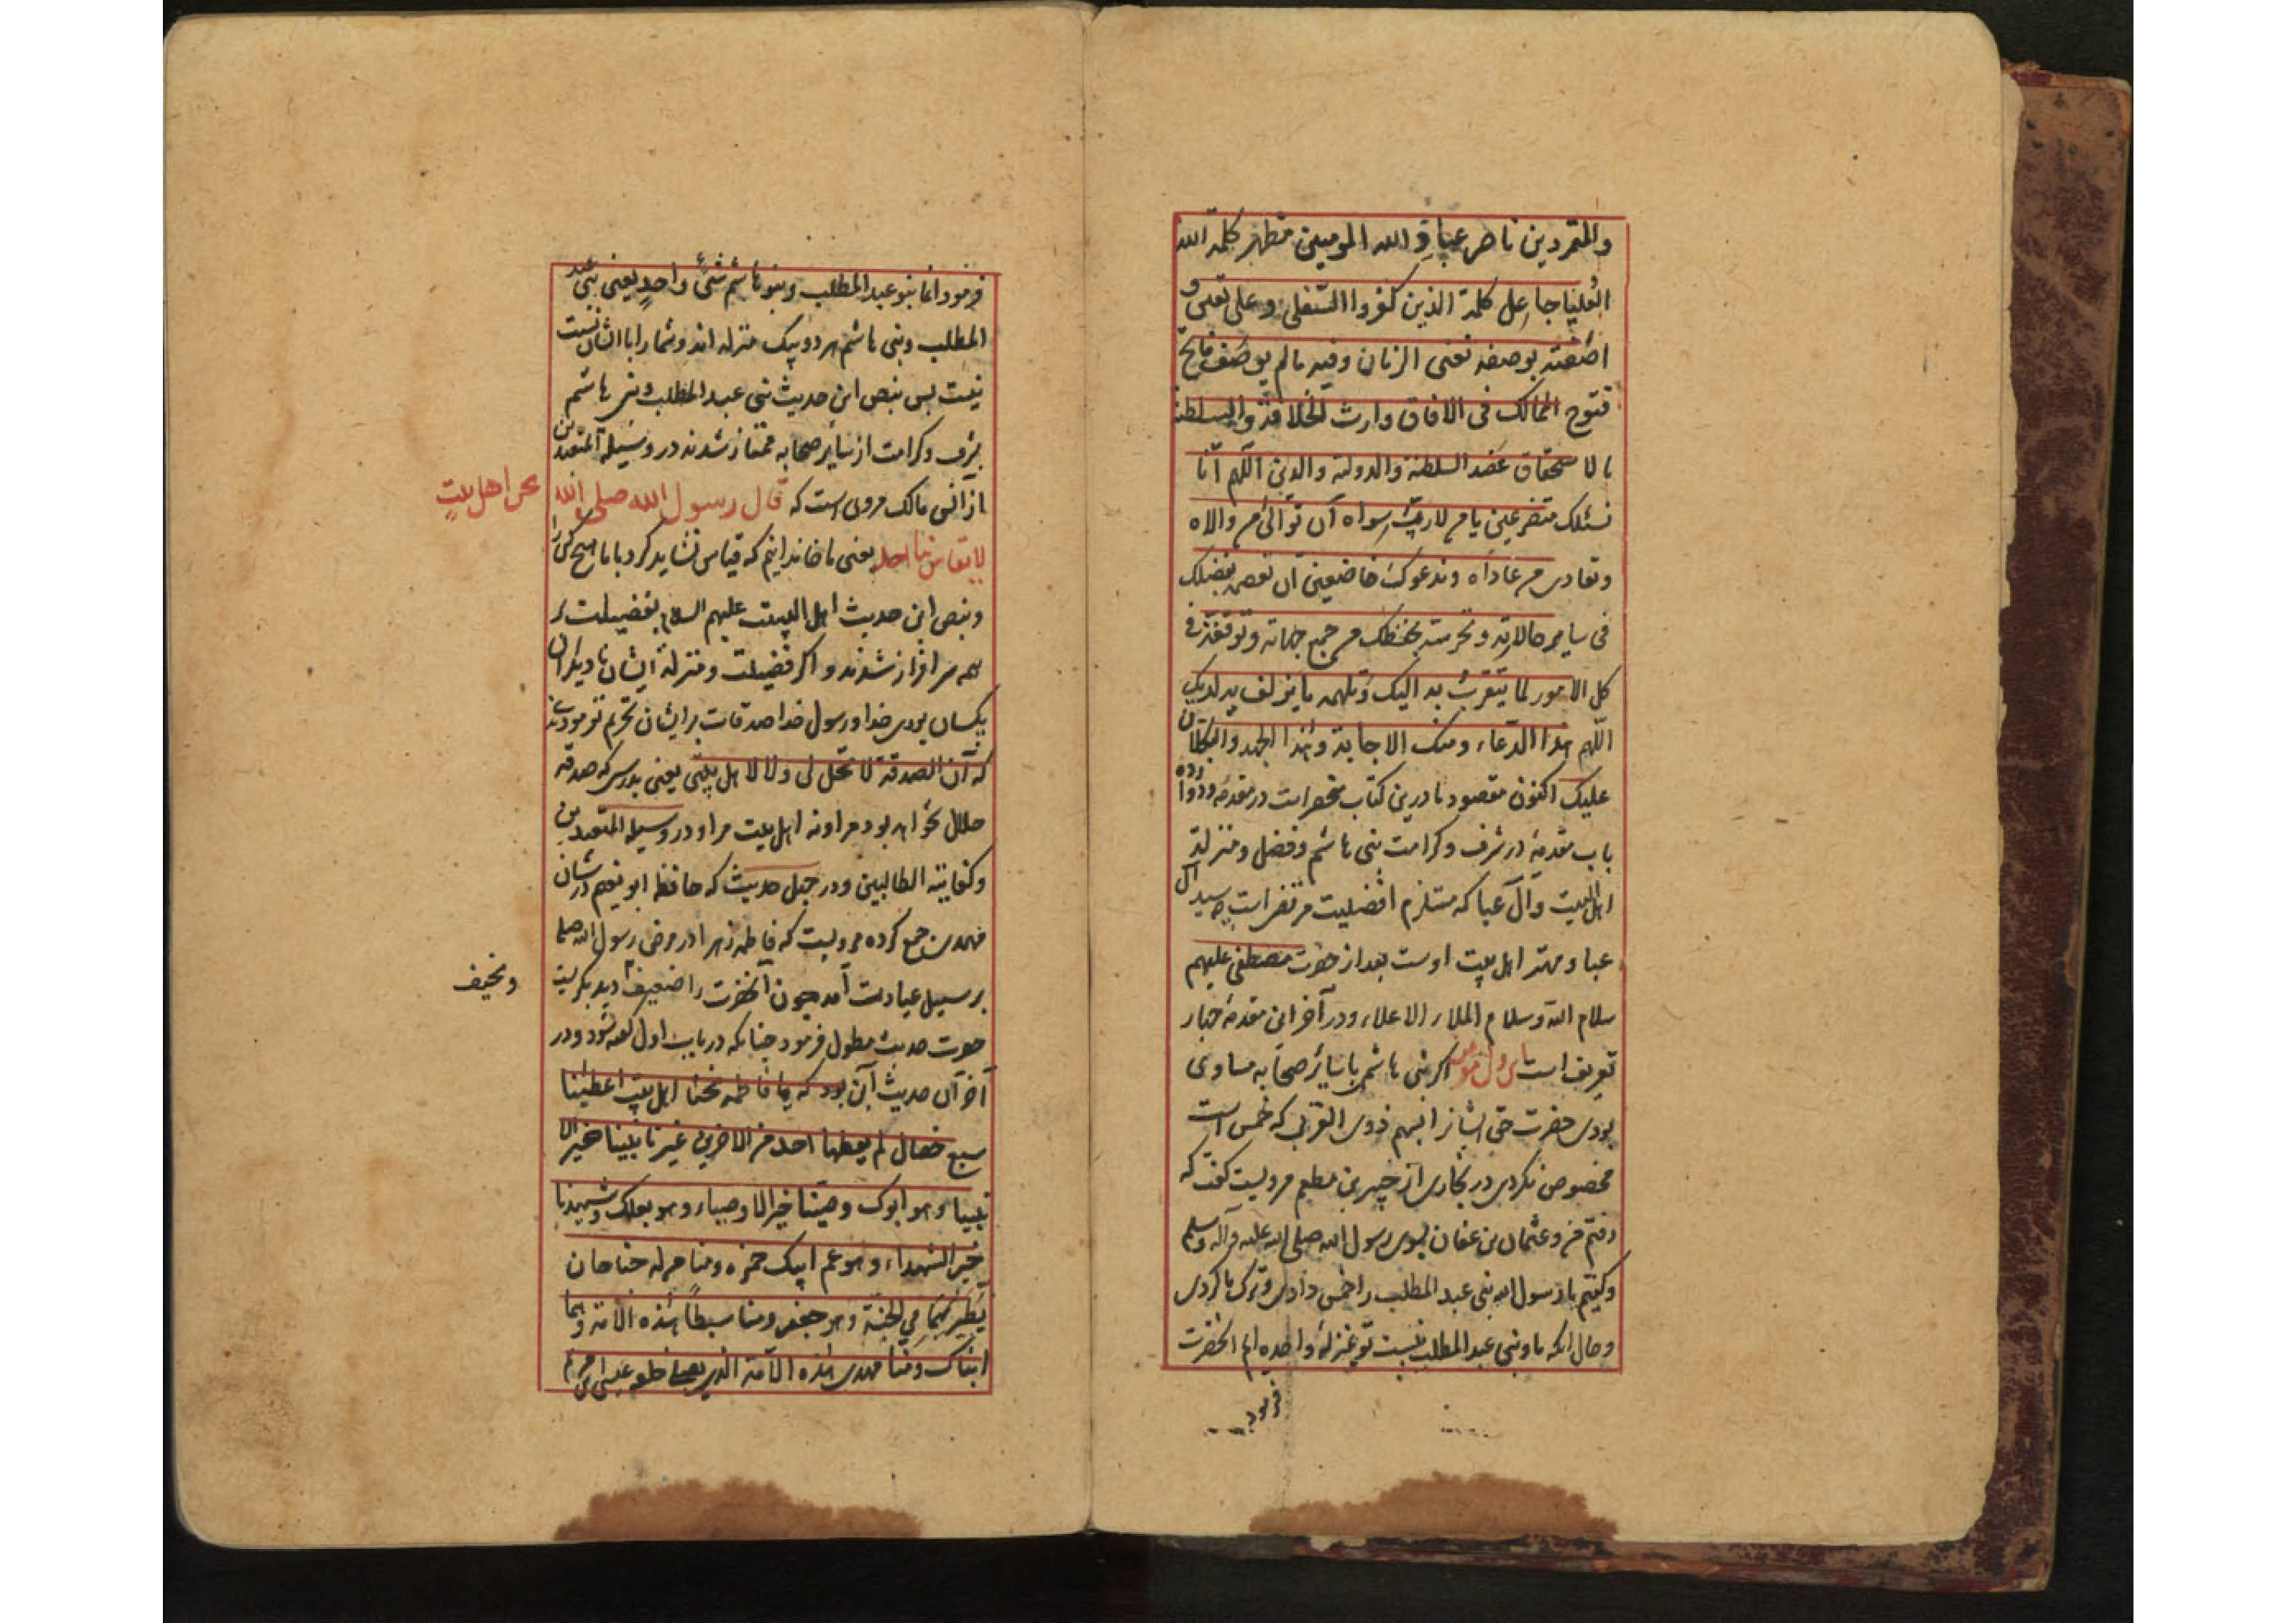 والمتمردین ناصر عباد الله المومنین مظهر کلمة الله
العلیا جاعل کلمة الذین کفروا السفلی و علی تفنن و
اصفیته بوصفه تفنی الزمان وفیه مالم یوصف فاتح
فتوح الممالک فی الافاق وارث الخلافة والسلطنة
بالاستحقاق عضد السلطنة والدولة والدین اللهم انا
نسئلک متضرعین یا من لا رب سواه ان توالی من والاه
وتعادی من عاداه وندعوک خاضعین ان تعصمه بفضلک
فی سایر حالاته وتحرسه بحفظک من جمیع جهاته وتوفقه فی
کل الامور لما یتقرب به الیک وتلهمه ما یزلف به لدیک
اللهم هذا الدعاء ومنک الاجابة وهذا الجهد والتکلان
علیک اکنون مقصود ما درین کتاب منحصر است در مقدمه ودوازده
باب مقدمه در شرف وکرامت بنی هاشم وفضل ومنزلة
اهل البیت وآل عبا که مستلزم افضلیت مرتضی است چه سید آل
عبا و مهتر اهل بیت اوست بعد از حضرت مصطفی علیهم
سلام الله وسلام الملاء الاعلاء ودر آخر این مقدمه
تعریف است اگر بنی هاشم با سائر صحابه مساوی
بودی حضرت حق ایشانرا بسهم ذوی القربی که خمس است
مخصوص نکردی در بخاری از جبیر بن مطعم مرویست گفت که
رفتم من وعثمان بن عفان بسوی رسول الله صلی الله علیه وآله وسلم
وگفتیم یا رسول الله بنی عبد المطلب را خمس دادی وترک ما کردی
وحال آنکه ما وبنی عبد المطلب نسبت تو بمنزلهٔ واحده ایم آنحضرت
فرمود
فرمود انما بنو عبد المطلب وبنو هاشم شئ واحد یعنی بنی عبد
المطلب وبنی هاشم هر دو بیک منزله اند وشما را با ایشان نسبت
نیست پس بنص این حدیث بنی عبد المطلب وبنی هاشم
بشرف وکرامت از سایر صحابه ممتاز شدند در وسیلة المتعبدین
از انس مالک مروی است که قال رسول الله صلی الله
نحن اهل بیت
لا یقاس بنا احد یعنی ما خاندانیم که قیاس نشاید کرد با ما هیچ کس را
وبنص این حدیث اهل البیت علیهم السلام بفضیلت بر
همه سرافراز شدند و اگر فضیلت ومنزلة ایشان با دیگران
یکسان بودی خدا ورسول خدا صدقات بر ایشان تحریم نفرمودندی
که ان الصدقة لا تحل لی ولا لاهل بیتی یعنی بدرستی که صدقه
حلال نخواهد بود مرا ونه اهل بیت مرا و در وسیلة المتعبدین
وکفایة الطالبین ودر چهل حدیث که حافظ ابو نعیم در شان
مهدی جمع کرده مرویست که فاطمه زهرا در مرض رسول الله صلعم
بر سبیل عیادت آمد چون آنحضرت را ضعیف دید بگریست
ونحیف
حضرت حدیث مطول فرمود چنانکه در باب اول گفته شود ودر
آخر آن حدیث این بود که یا فاطمه نحن اهل بیت اعطینا
سبع خصال لم یعطها احد من الاخرین غیرنا نبینا خیر الا
نبیاء وهو ابوک وصینا خیر الاوصیاء وهو بعلک وشهیدنا
خیر الشهداء وهو عم ابیک حمزه ومنا من له جناحان
یطیر بهما فی الجنة وهو جعفر ومنا سبطا هذه الامة وهما
ابناک ومنا مهدی هذه الامة الذی یصلی خلفه عیسی بن مریم